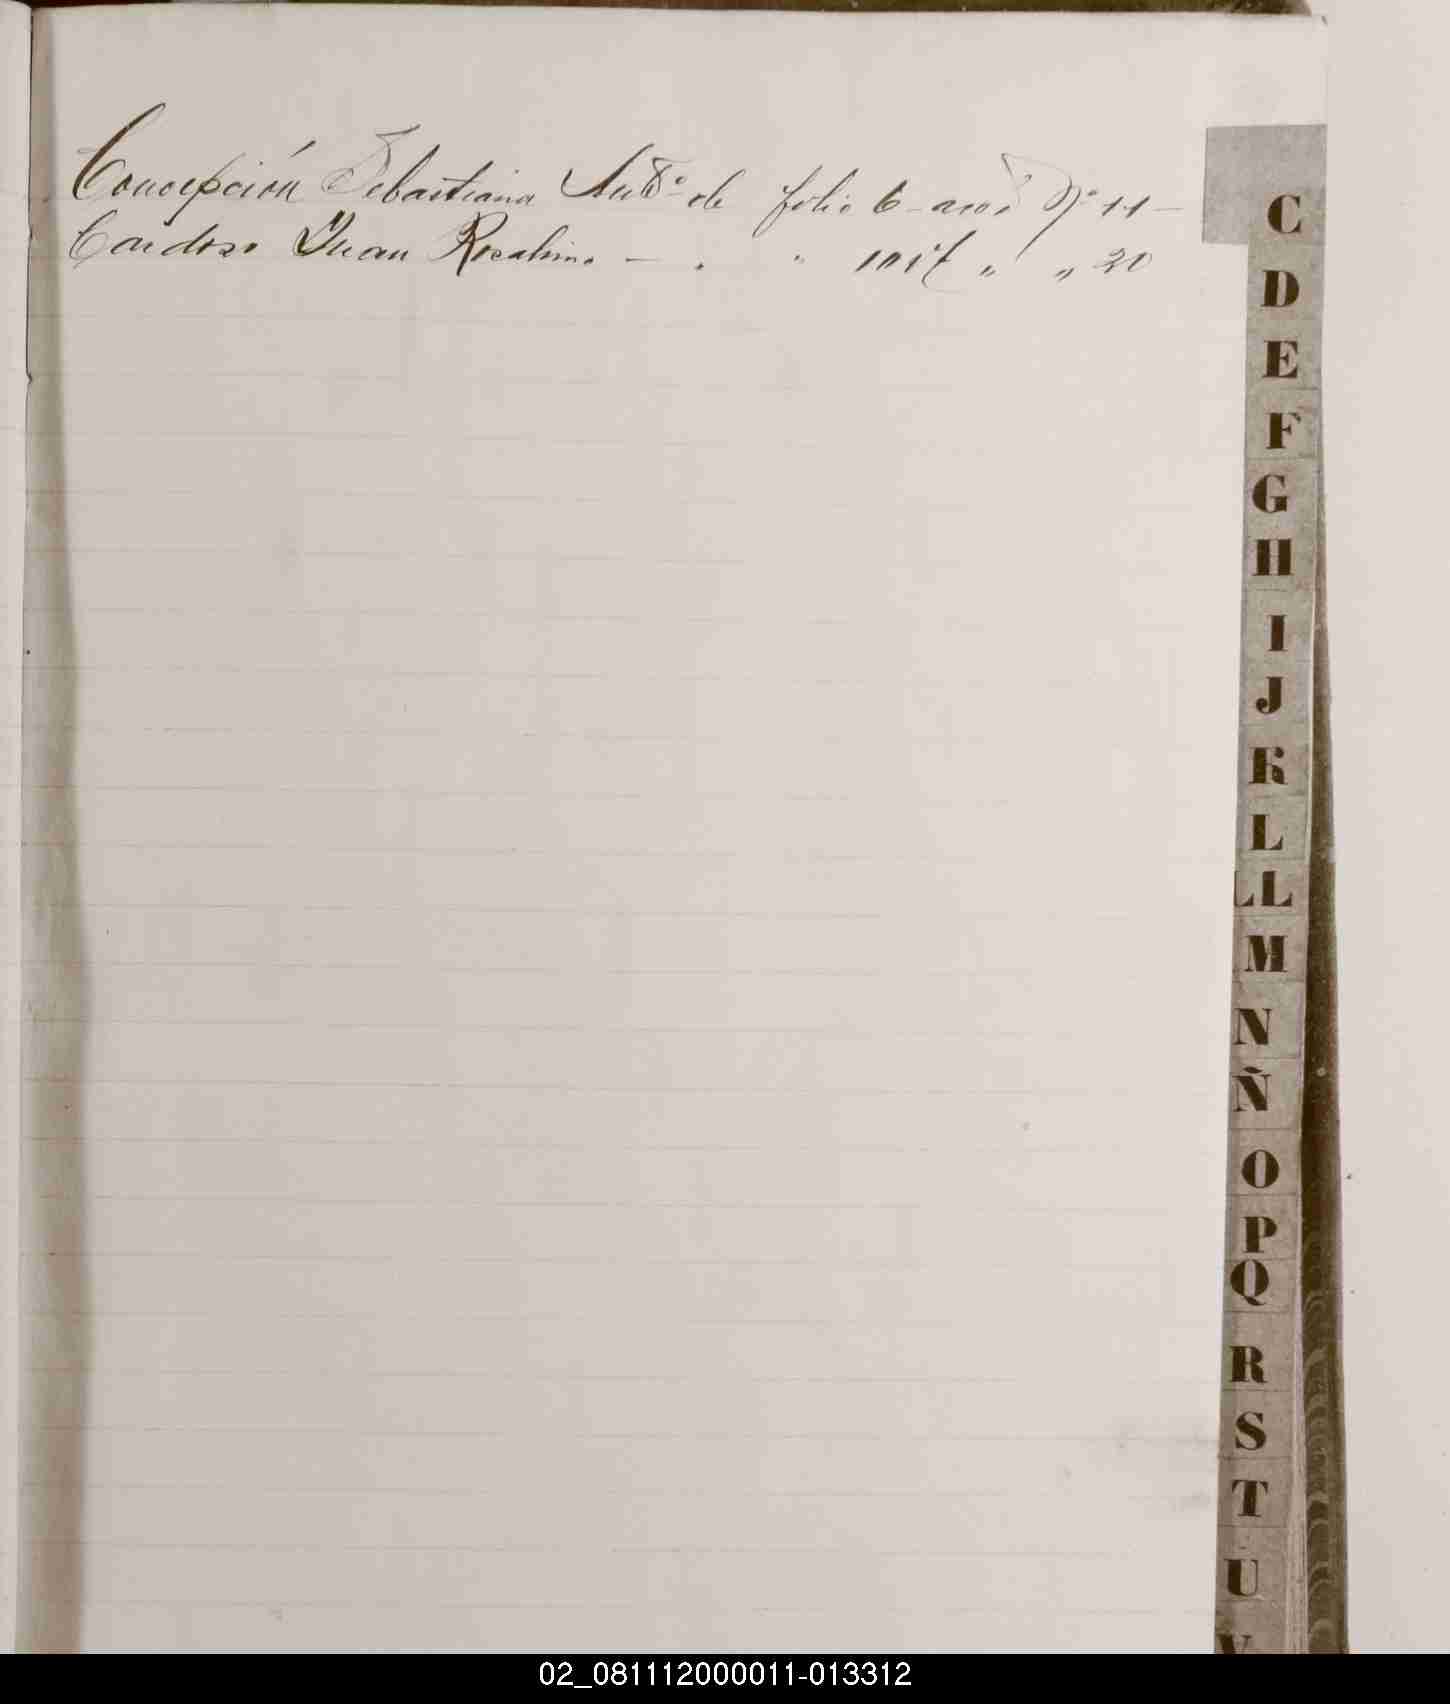 Concepción Sebastiana de folio 6 Nº 11 -
Cardoso Juan Rosalino — " " 10 " " 20
C
D
E
F
G
H
I
J
K
L
LL
M
N
Ñ
O
P
Q
R
S
T
U
V
02_081112000011-013312